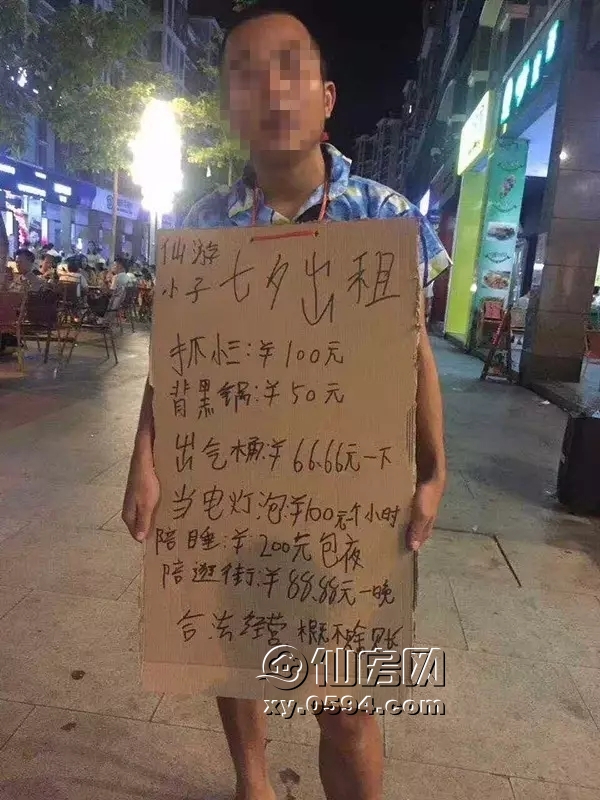 仙游
小子 七夕出租
抓小三:¥100元
背黑锅:¥50元
出气桶:¥66.66元一下
当电灯泡:¥100元一个小时
陪睡:¥200元包夜
陪逛街:¥88.88元一晚
合法经营 概不赊账
仙房网
xy.0594.com